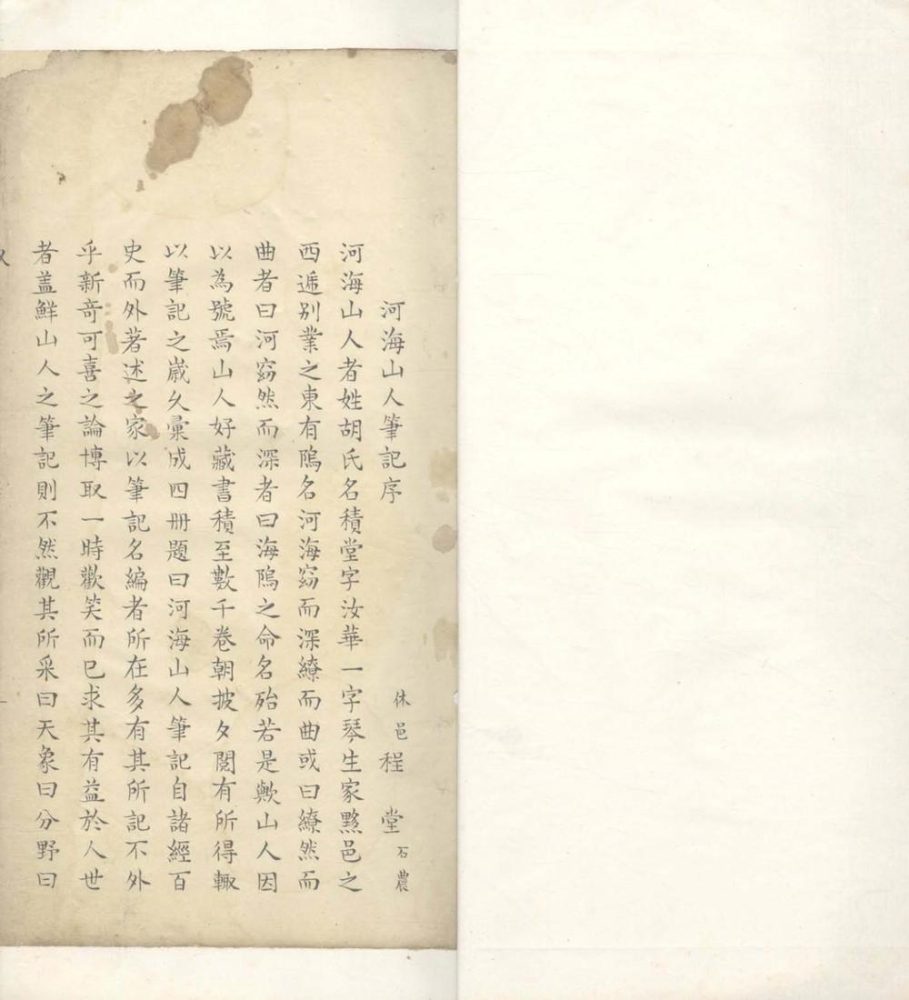 河海山人筆記序
休邑程　堂石農
河海山人者姓胡氏名積堂字汝華一字琴生家黟邑之
西遞別業之東有隝名河海窈而深繚而曲或曰繚然而
曲者曰河窈然而深者曰海隝之命名殆若是歟山人因
以為號焉山人好藏書積至數千卷朝披夕閱有所得輒
以筆記之嵗久彙成四册題曰河海山人筆記自諸經百
史而外著述之家以筆記名編者所在多有其所記不外
乎新竒可喜之論博取一時歡笑而已求其有益於人世
者盖鮮山人之筆記則不然觀其所采曰天象曰分野曰